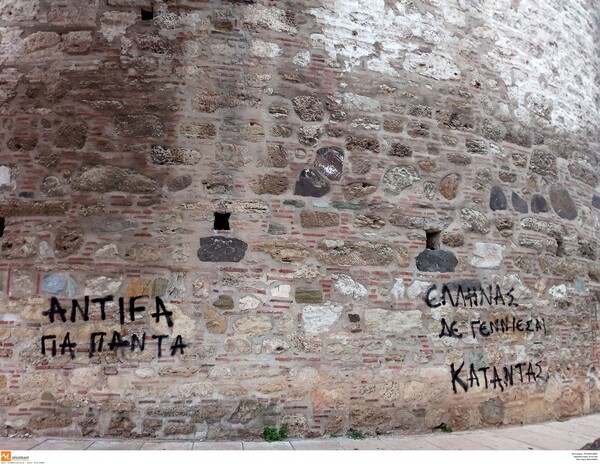 ANTIFA
ΓΙΑ ΠΑΝΤΑ
ΕΛΛΗΝΑΣ
ΔΕ ΓΕΝΝΙΕΣΑΙ
ΚΑΤΑΝΤΑΣ